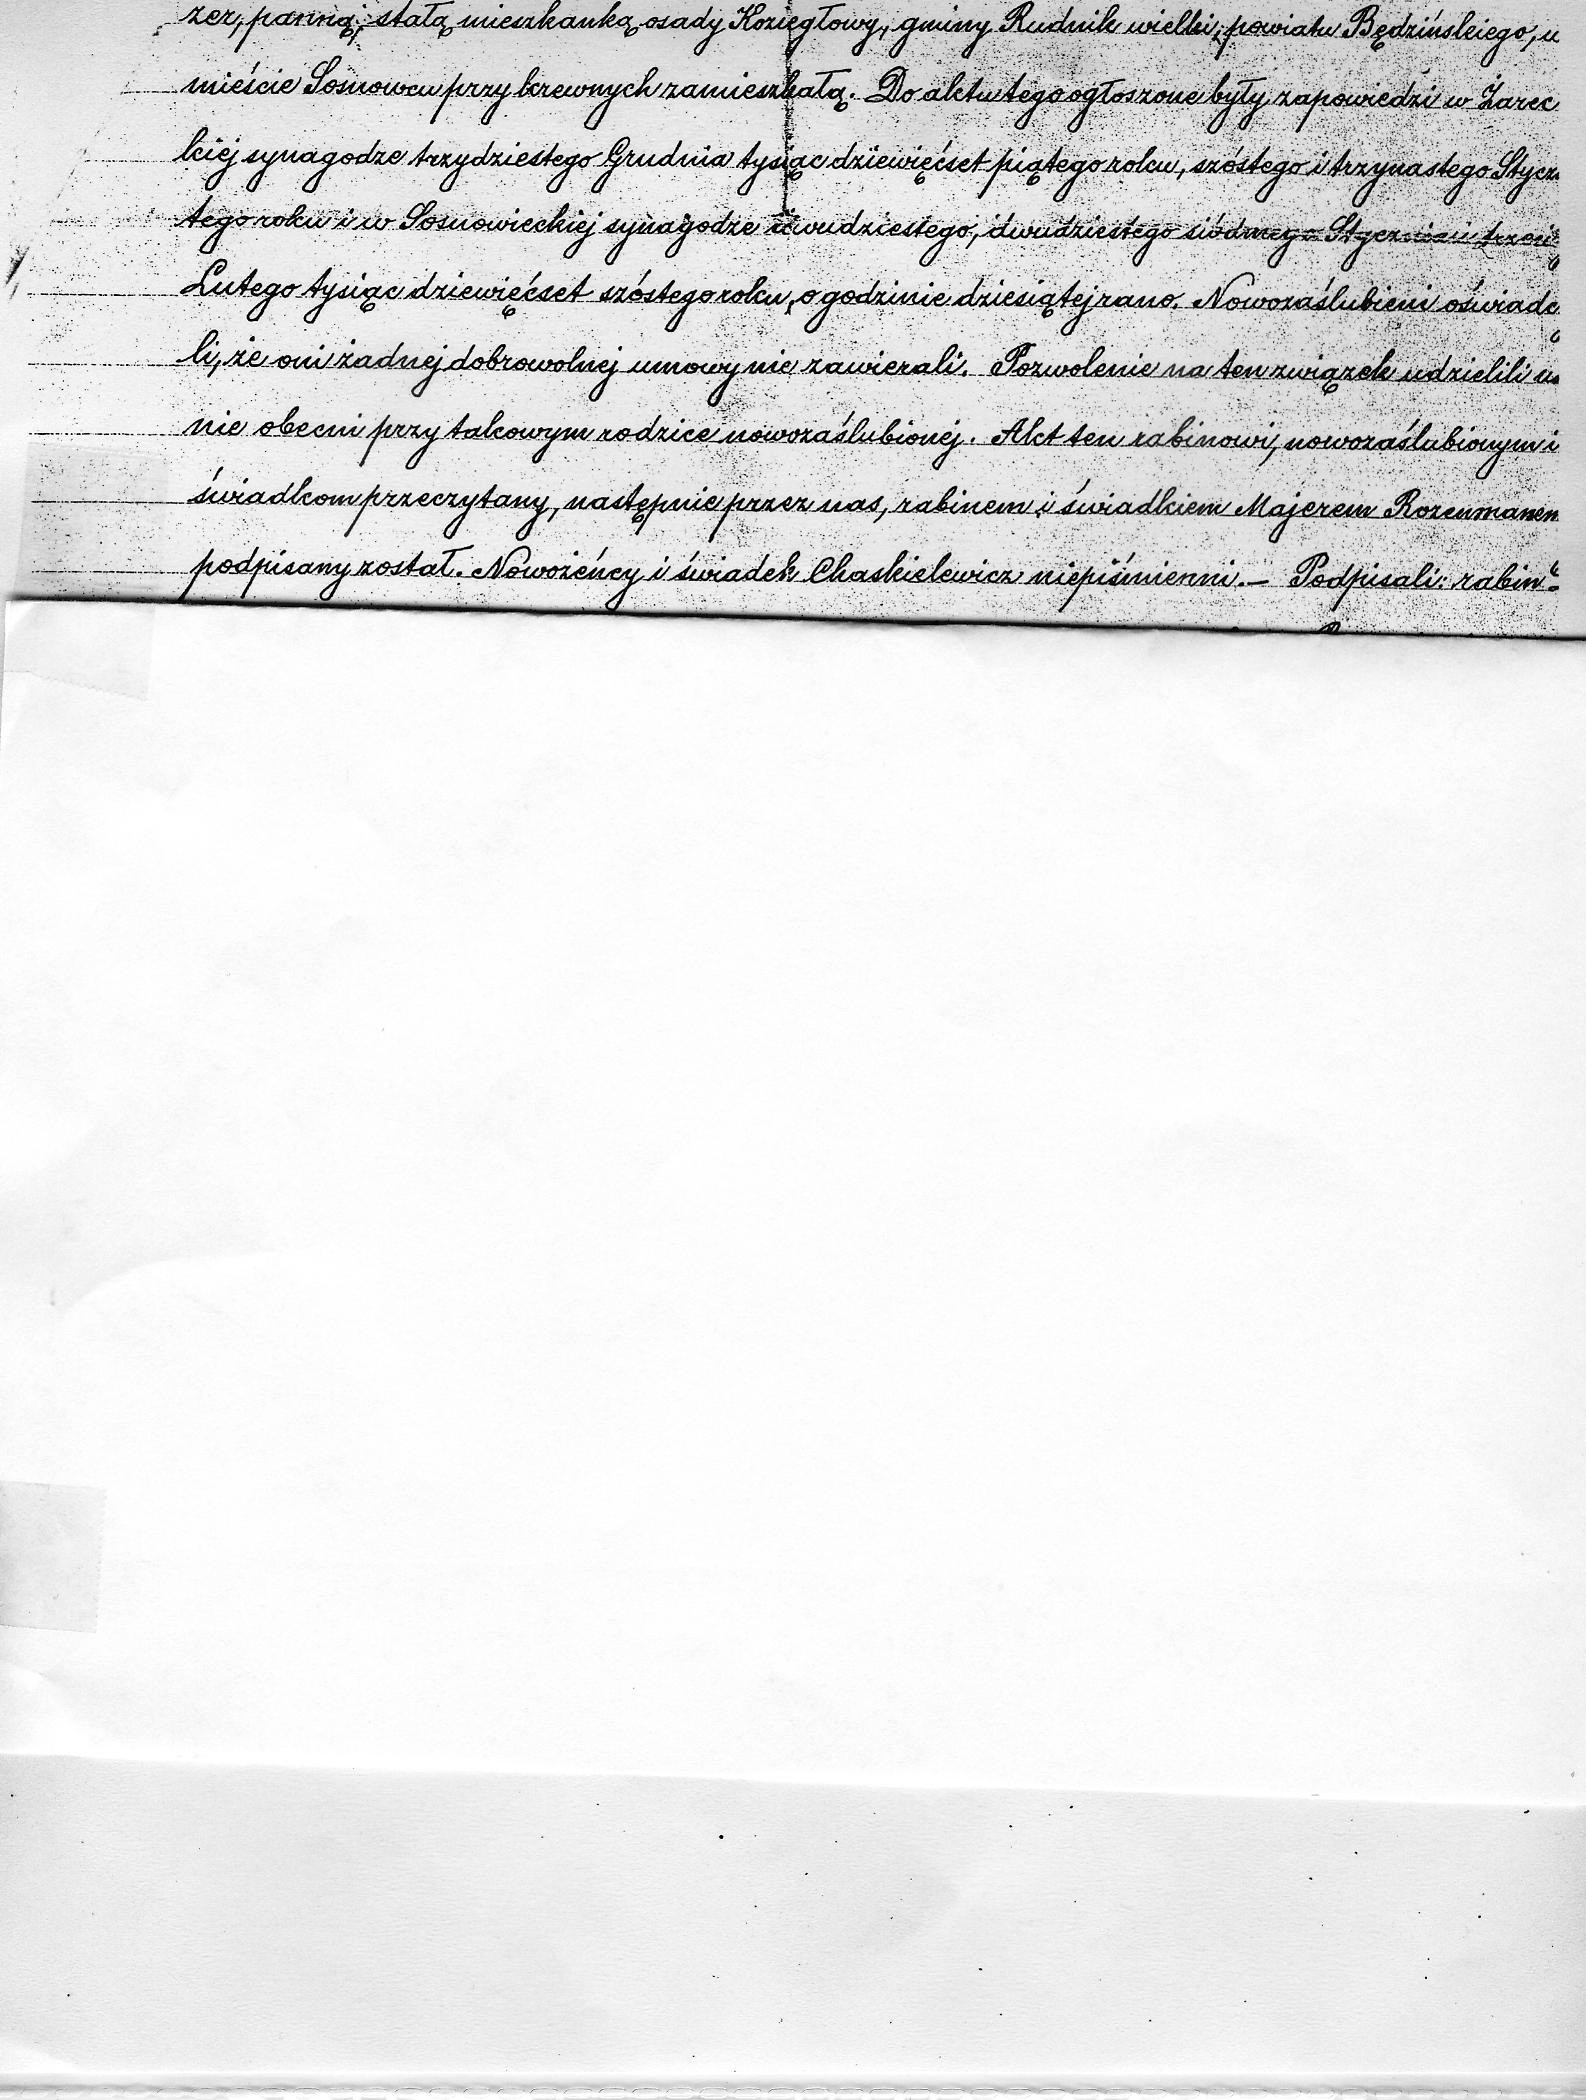 zer, panną, stałą mieszkanką osady Koziegłowy, gminy Rudnik wielki, powiatu Będzińskiego, w
mieście Sosnowcu przy krewnych zamieszkałą. Do aktu tego ogłoszone były zapowiedzi w Żarec
kiej synagodze trzydziestego Grudnia tysiąc dziewięćset piątego roku, szóstego i trzynastego Stycz
tego roku i w Sosnowieckiej synagodze dwudziestego, dwudziestego siódmego Stycznia i trzeci
Lutego tysiąc dziewięćset szóstego roku, o godzinie dziesiątej rano. Nowozaślubieni oświadc
li, że oni żadnej dobrowolnej umowy nie zawierali. Pozwolenie na ten związek udzielili us
nie obecni przy takowym rodzice nowozaślubionej. Akt ten rabinowi, nowozaślubionym i
świadkom przeczytany, następnie przez nas, rabinem i świadkiem Majerem Rozenmanem
podpisany został. Nowożeńcy i świadek Chaskielewicz niepiśmienni.— Podpisali: rabin